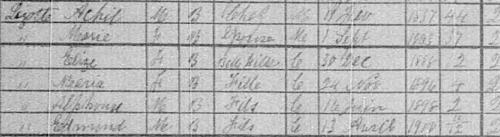 Lizotte Achil M B Chef M 18 Fev 1857 44 2
" Marie F B Epouse M 1 Sept 37 2
" Elise F B Bell Fille C 30 Dec 1888 12 2
" Maria F B Fille C 24 Nov 1896 4
" Alphonse M B Fils C 16 Juin 1898 2
" Edmond M B Fils C 13 Avril 1900 /12